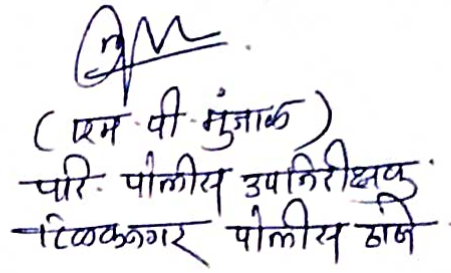 (एम. पी. मुंजाळ)
परि. पोलीस उपनिरीक्षक
टिळकनगर पोलीस ठाणे